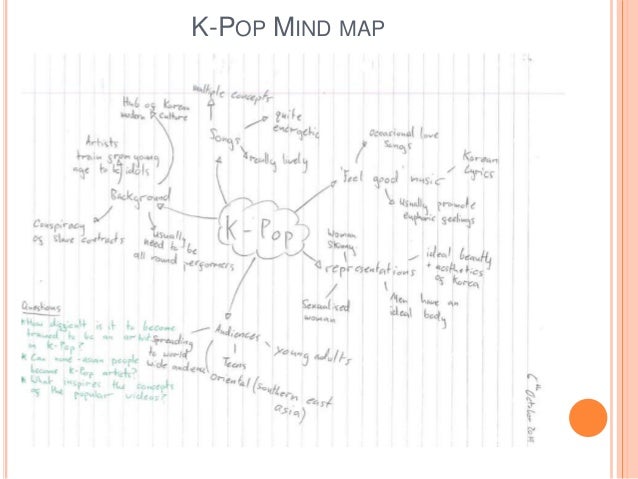 K-POP MIND MAP
multiple concepts
quite
energetic
Songs
really lively
Hub of Korean
modern culture
Artists
train from young
age to be idols
Background
Conspiracy
of slave contracts
usually
need to be
all round performers
K-Pop
occasional love
songs
'Feel good' music
Korean
lyrics
usually promote
euphoric feelings
Woman
skinny
representations
ideal beauty
+ aesthetics
of Korea
Men have an
ideal body
Sexualised
woman
Audiences
young adults
Teens
oriental (southern east
asia)
spreading
to world
wide audience
Questions
How difficult is it to become
trained to be an artist
in K-Pop?
Can none-asian people
become K-Pop artists?
What inspires the concepts
of the popular videos?
6th October 2015